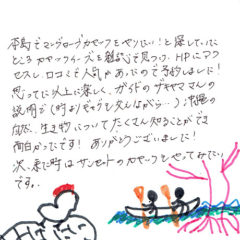 本島でマングローブカヤックをやりたい!と探していた
ところカヤックツアーズを雑誌で見つけ、HPにアク
セスし、口コミで人気があったので予約しました!
思ってた以上に楽しく、ガイドのザキヤマさんの
説明で(時々ギャグも交えながら…)沖縄の
自然、生き物についてたくさん知ることができ
面白かったです! ありがとうございました!
次、来た時はサンセットのカヤックをやってみたい
です。